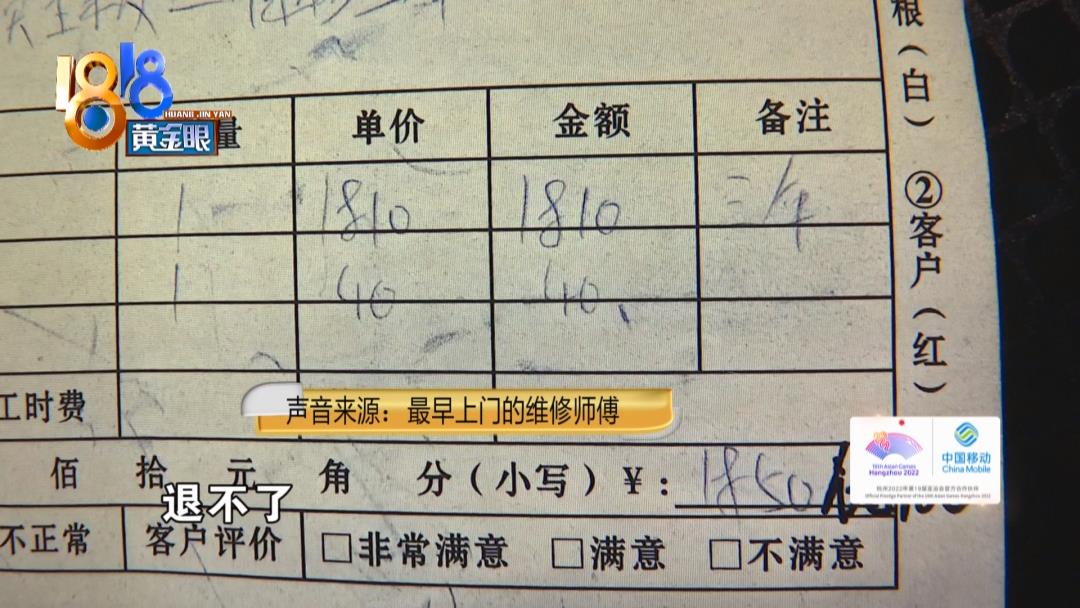 根（白）
②客户（红）
1818
HUANG JIN YAN
黄金眼
量 单价 金额 备注
1 1810 1810 三年
1 40 40
声音来源：最早上门的维修师傅
工时费
19th Asian Games
Hangzhou 2022
中国移动
China Mobile
杭州2022年第19届亚运会官方合作伙伴
Official Prestige Partner of the 19th Asian Games Hangzhou 2022
佰 拾 元 角 分（小写）￥：1850
退不了
不正常 客户评价 □非常满意 □满意 □不满意